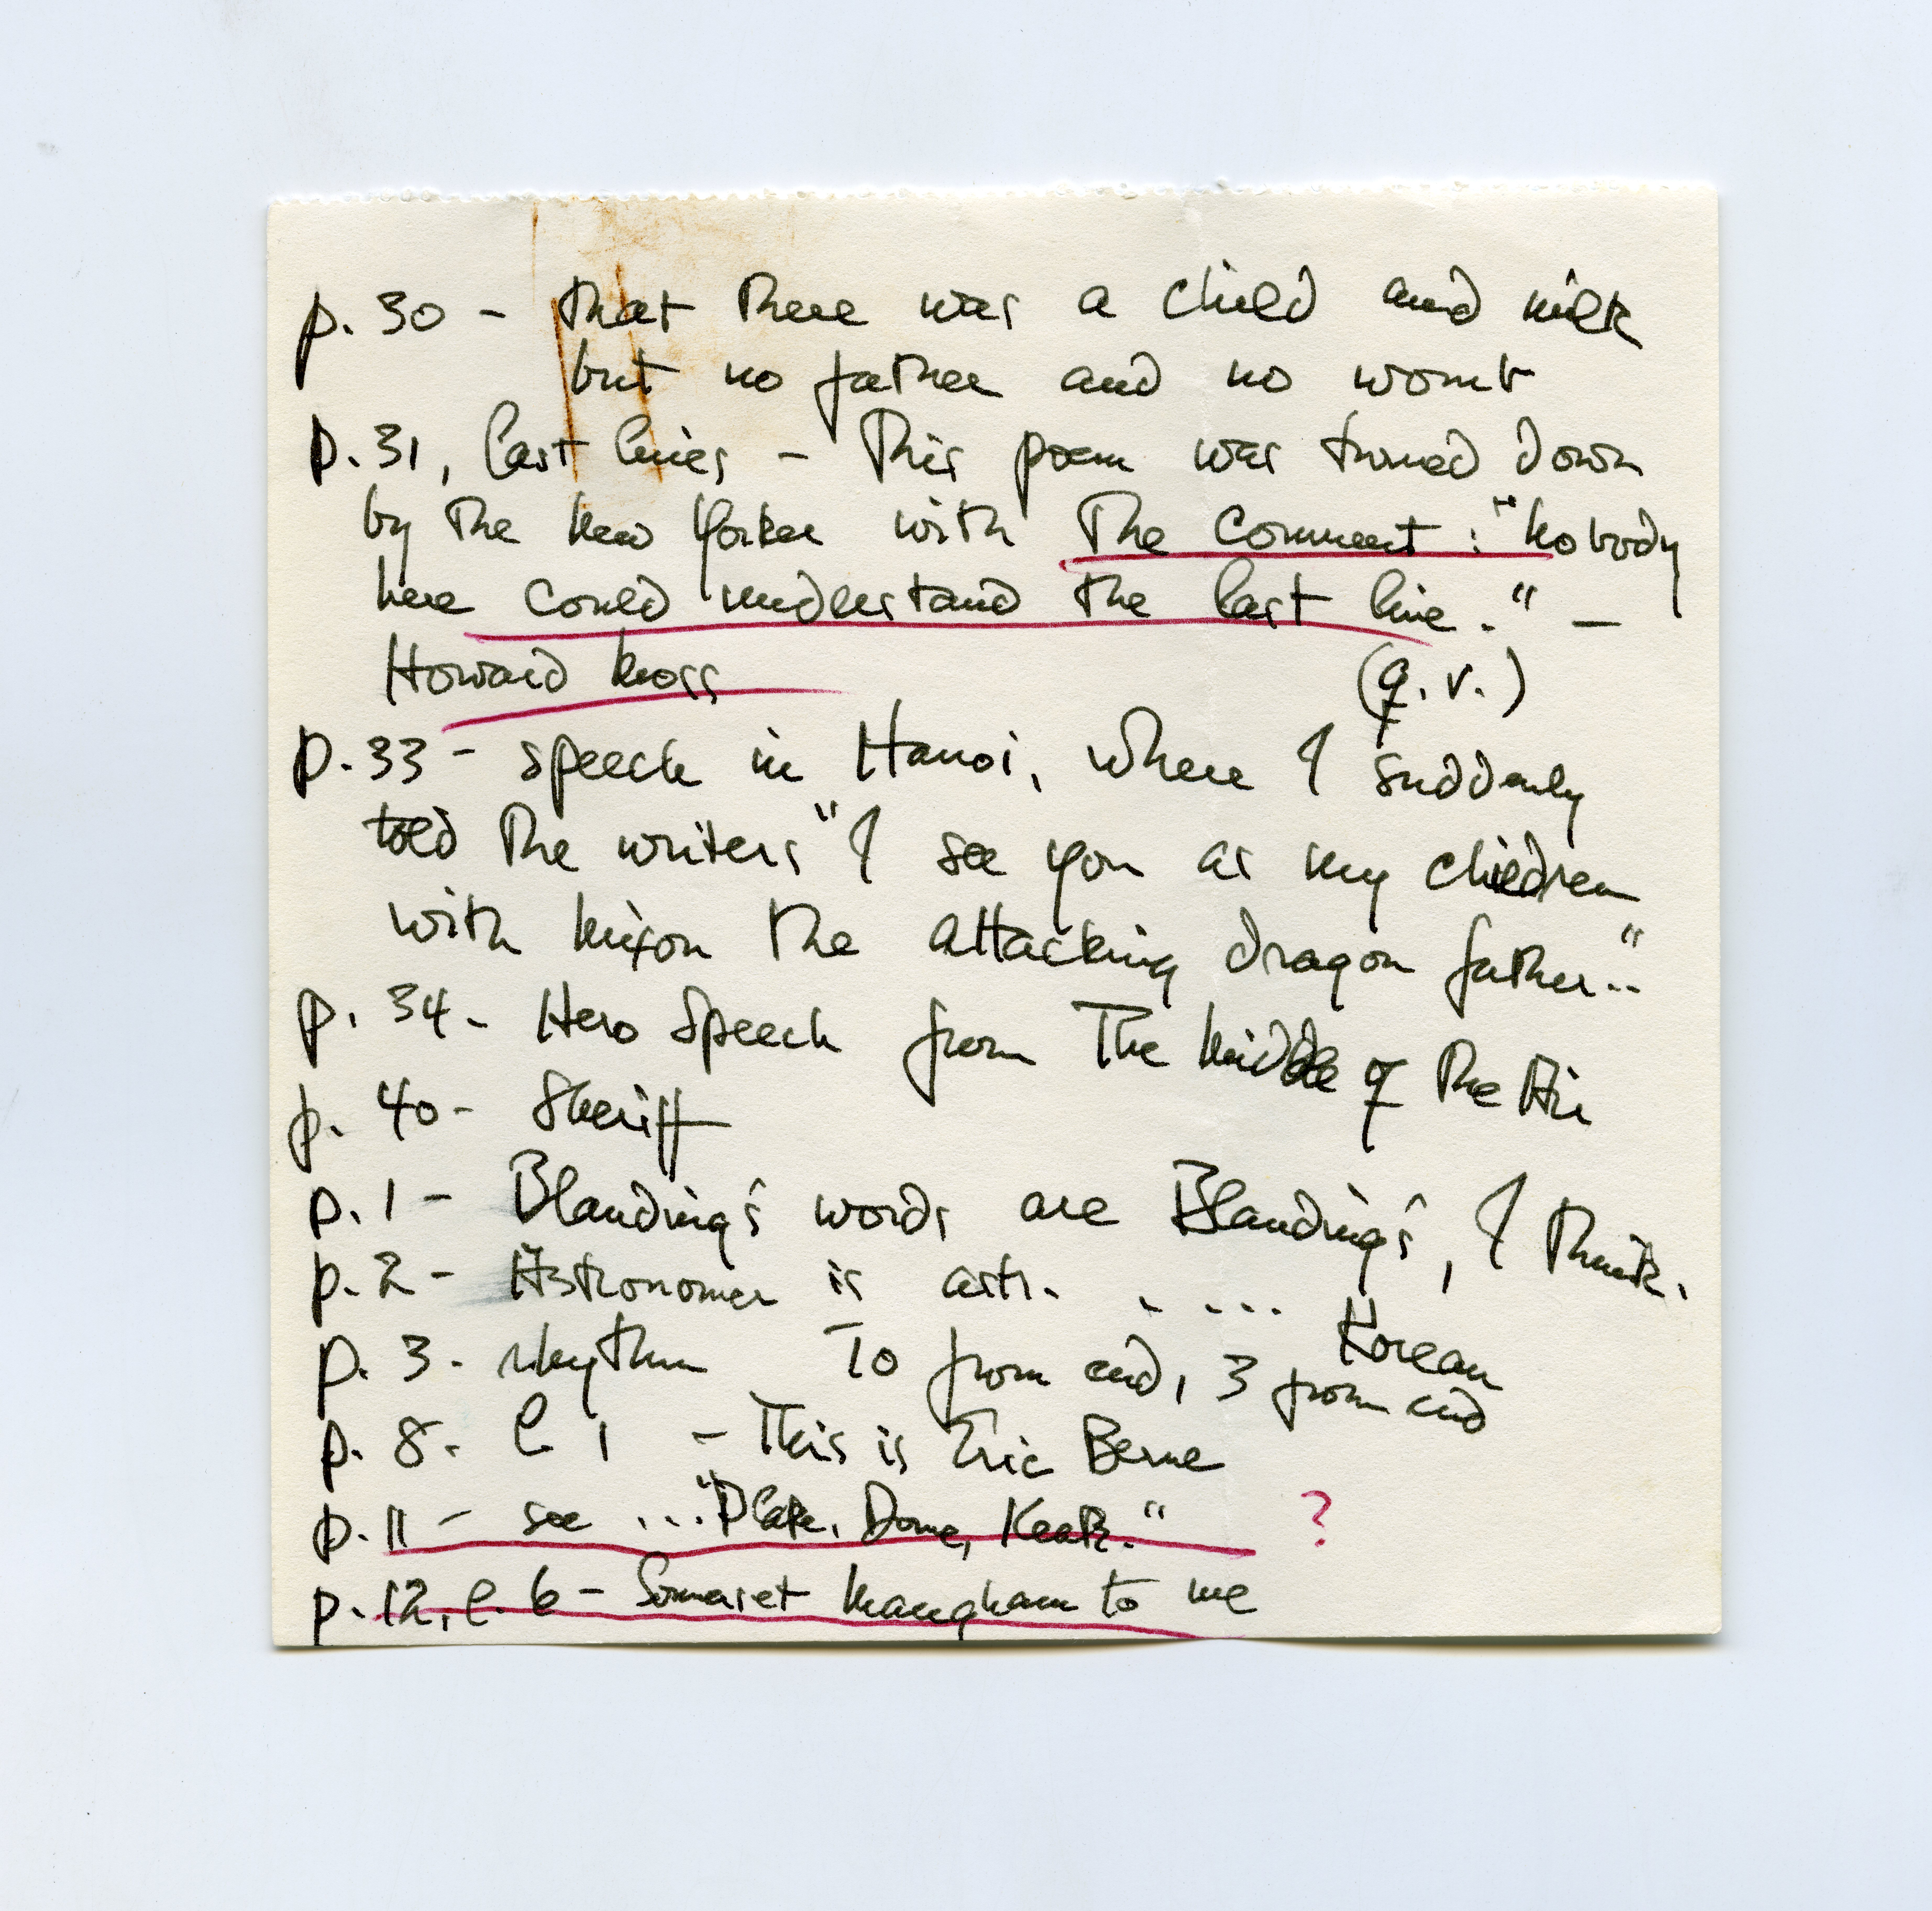 p. 30 - that there was a child and milk
but no father and no womb
p. 31, last lines - This poem was turned down
by the New Yorker with the comment: "Nobody
here could understand the last line." —
Howard Moss (q.v.)
p. 33 - speech in Hanoi, where I suddenly
told the writers "I see you as my children
with Nixon the attacking dragon father.."
p. 34 - Hero speech from The Middle of the Air
p. 40 - Sheriff
p. 1 - Blanding's words are Blanding's, I think.
p. 2 - Astronomer is astr. . ...
Korean
p. 3. rhythm To from end, 3 from end
p. 8. l 1 - This is Eric Berne
p. 11 - see ..." Donne, Keats." ?
p. 12, l. 6 - Somerset Maugham to me